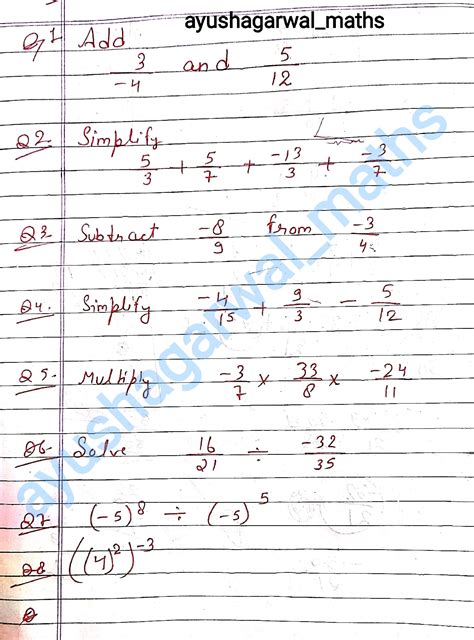 ayushagarwal_maths
Q1 Add
3/-4 and 5/12
Q2 Simplify
5/3 + 5/7 + -13/3 + -3/7
Q3 Subtract -8/9 from -3/4
Q4. Simplify -4/15 + 9/3 - 5/12
Q5. Multiply -3/7 × 33/8 × -24/11
Q6 Solve 16/21 ÷ -32/35
Q7 (-5)^8 ÷ (-5)^5
Q8 ((4)^2)^-3
Q
ayushagarwal_maths